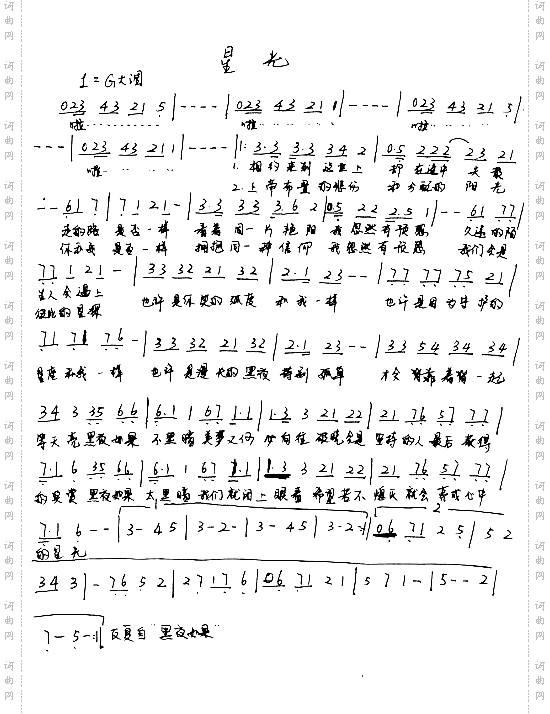 星光
1=G大调
023 43 21 5 | - - - - | 023 43 21 1 | - - - - | 023 43 21 5 |
啦 啦 啦
- - - | 023 43 21 1 | - - - - | 1· 3·3 3·3 34 2 | 0·5 222 23 21 |
啦 1.相约来到这世上 却在途中
2.上帝布置的 和分配的阳光
- - 61 7 | 71 21 - | 3·3 33 3·6 2 | 0·5 22 2·5 1 | - - 61 77 |
是否一样 看着同一片艳阳 我忽然有预感 久违的陌
你和我 是否一样 拥抱同一种信仰 我忽然有预感 我们会是
77 1 21 - | 33 32 21 32 | 2·1 23 - - | 77 77 75 21 |
生人会遇上 也许是你哭的弧度 和我一样 也许是因为守护的
彼此的星探
71 71 76 - | 33 32 21 32 | 2·1 23 - - | 33 54 34 34 |
星座和我一样 也许是漫长的黑夜 特别孤单 才会背靠着背一起
34 3 35 66 | 6·1 1 67 1·1 | 1·3 3 21 22 | 21 76 57 77 |
等天亮 黑夜如果 不黑暗 美梦又何必向往 破晓会是坚持的人最后获得
7·1 6 35 66 | 6·1 1 67 1·1 | 1·3 3 21 22 | 21 76 57 77 |
的奖赏 黑夜如果 太黑暗 我们就闭上眼看 希望若不熄灭就会亮成心中
7·1 6 - - | 3 - 45 | 3 - 2 - | 3 - 45 | 3 - 2 - :| 06 71 2 5 | 5 2
的星光
34 3 | - 76 5 2 | 2 7 17 6 | 06 71 2 1 | 5 7 1 - | 5 - - 2 |
7 - 5 - :| 反复自"黑夜如果"
词曲网
词曲网